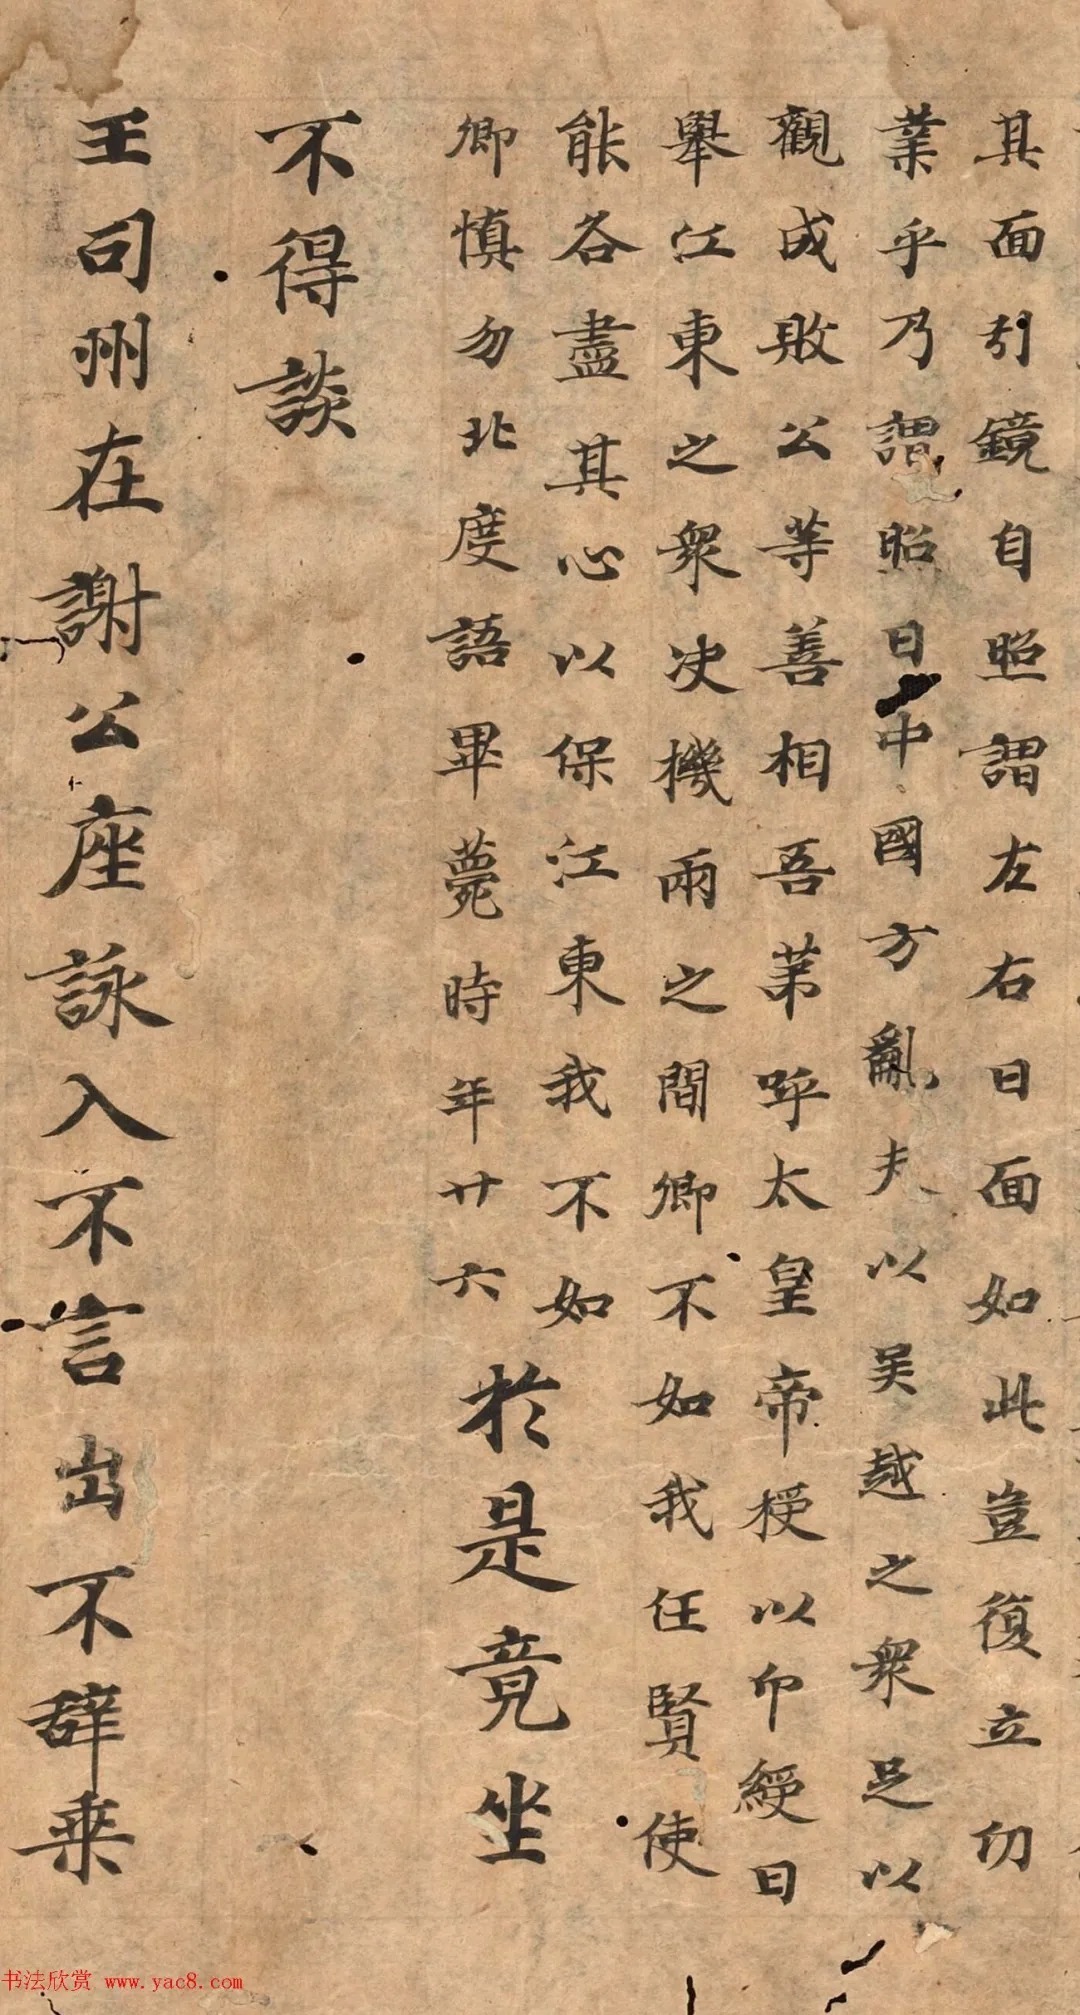 其面引鏡自照謂左右曰面如此豈復立功
業乎乃謂昭曰中國方亂夫以吳越之衆足以
觀成敗公等善相吾苐呼太皇帝授以印綬曰
舉江東之衆决機兩之間卿不如我任賢使
能各盡其心以保江東我不如
卿慎勿北度語畢薨時年廿六於是竟坐
不得談
王司州在謝公座詠入不言出不辞乗
书法欣赏 www.yac8.com